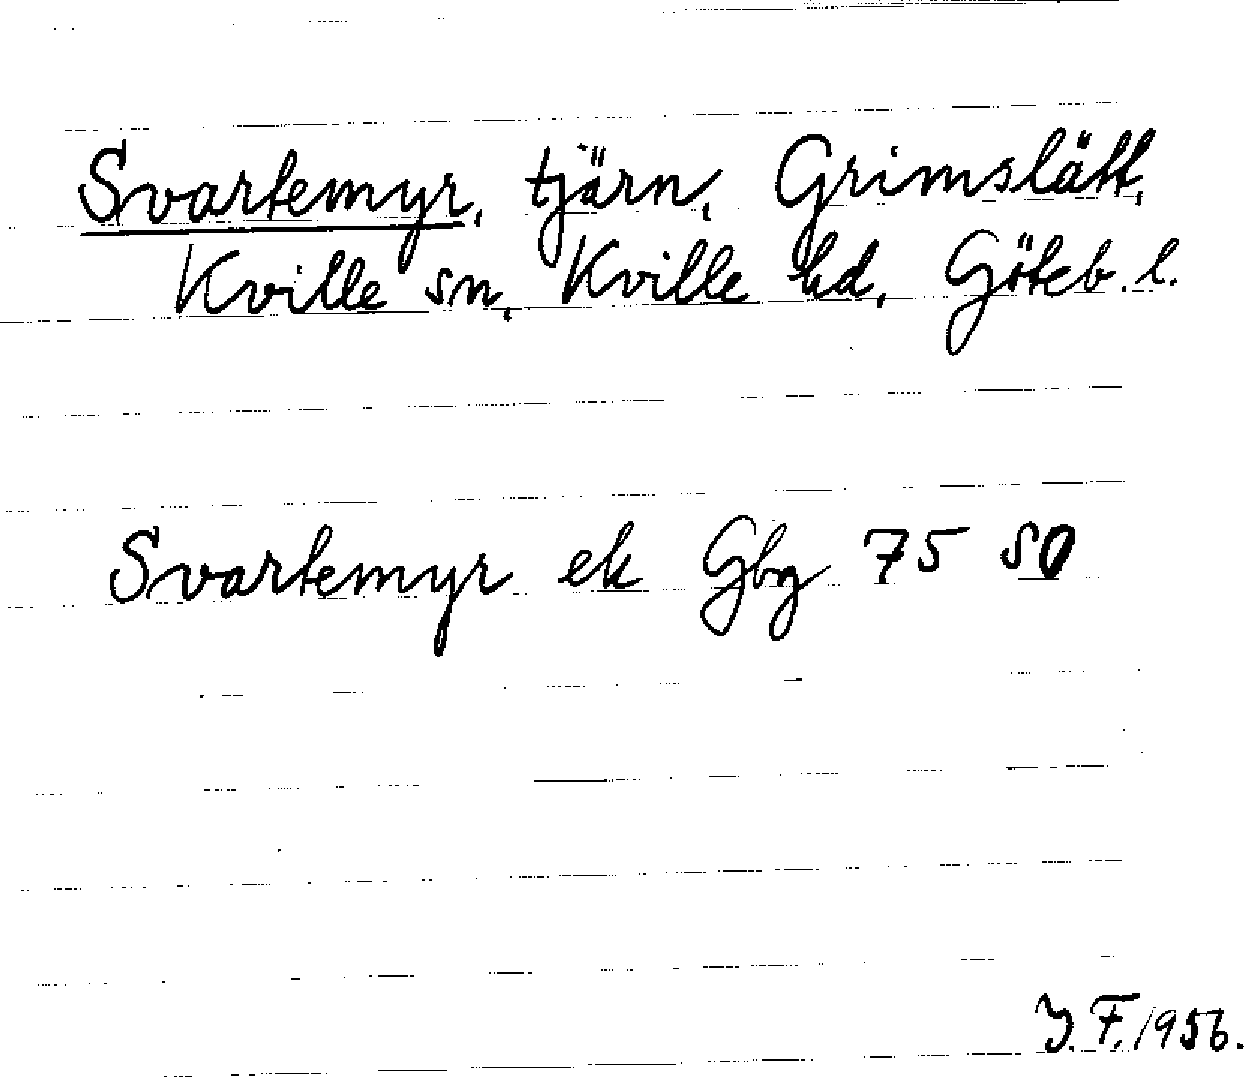 Svartemyr, tjärn, Grimslätt,
Kville sn, Kville hd, Göteb. l.
Svartemyr ek Gbg 75 SO
Y. F. 1956.